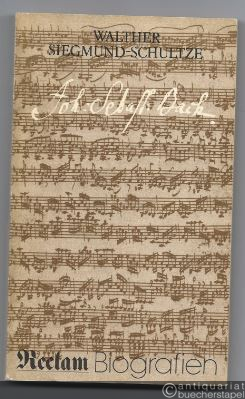 WALTHER
SIEGMUND-SCHULTZE
Joh. Sebast. Bach
Reclam Biografien
antiquariat
buecherstapel